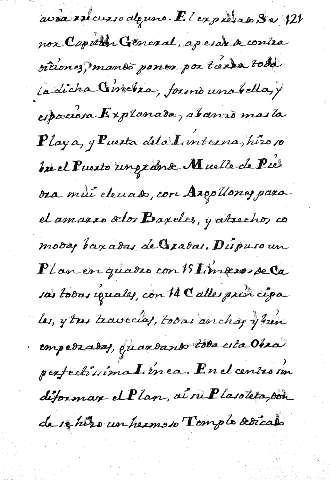 avia recurso alguno. El expresado Se- 121
ñor Capitán General, apesar de contra
diciones, mandó poner por tierra toda
la dicha Ginebra, formó una bella, y
espaciosa Explanada, abanzó mas la
Playa, y Puerta dela Linterna, hizo so
bre el Puerto un grande Muelle de Pie
dra mui elevado, con Argollones para
el amarro delos Baxeles, y atrechos, co
modas baxadas de Gradas. Dispuso un
Plan en quadro con 15 Lineas de Ca
sas todas iguales, con 14 Calles principa
les, y tres travecias, todas anchas, y bien
empedradas, guardando toda esta Obra
perfectissima Linea. En el centro sin
disformar el Plan, ai su Plasoleta, don
de se hizo un hermoso Templo dedicado